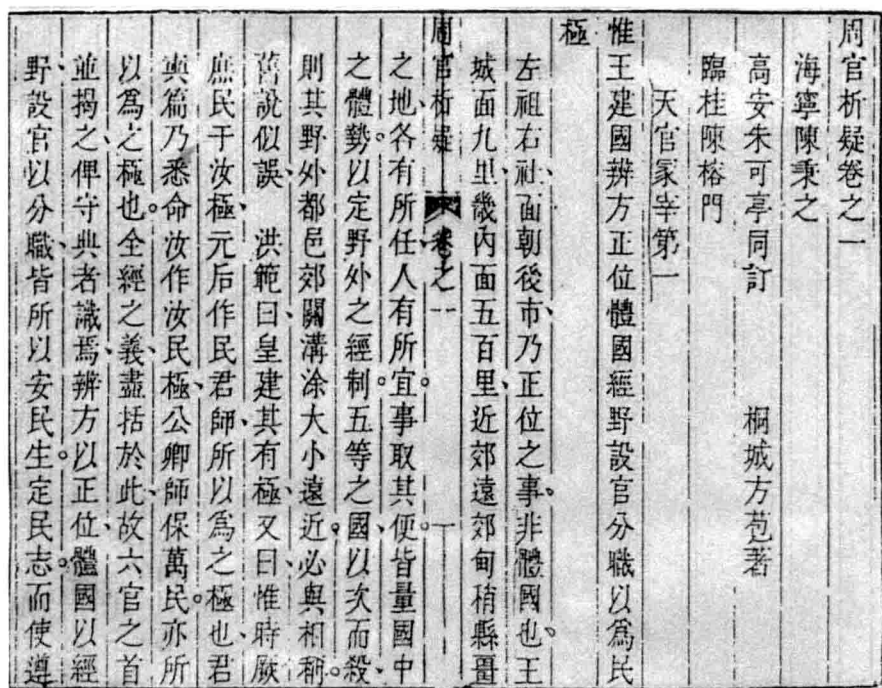 周官析疑卷之一
海寧陳秉之
高安朱可亭同訂 桐城方苞著
臨桂陳榕門
天官冢宰第一
惟王建國辨方正位體國經野設官分職以爲民
極
左祖右社、面朝後市、乃正位之事、非體國也、王
城面九里、畿內面五百里、近郊遠郊甸稍縣畺
周官析疑 卷之一 一
之地、各有所任、人有所宜。事取其便。皆量國中
之體勢。以定野外之經制。五等之國、以次而殺、
則其野外都邑郊關溝涂大小遠近、必與相稱。
舊說似誤、 洪範曰、皇建其有極、又曰惟時厥
庶民于汝極、元后作民君師、所以爲之極也、君
奭篇乃悉命汝作汝民極、公卿師保萬民、亦所
以爲之極也。全經之義、盡括於此、故六官之首
並揭之、俾守典者識焉、辨方以正位、體國以經
野、設官以分職、皆所以安民生。定民志。而使遵